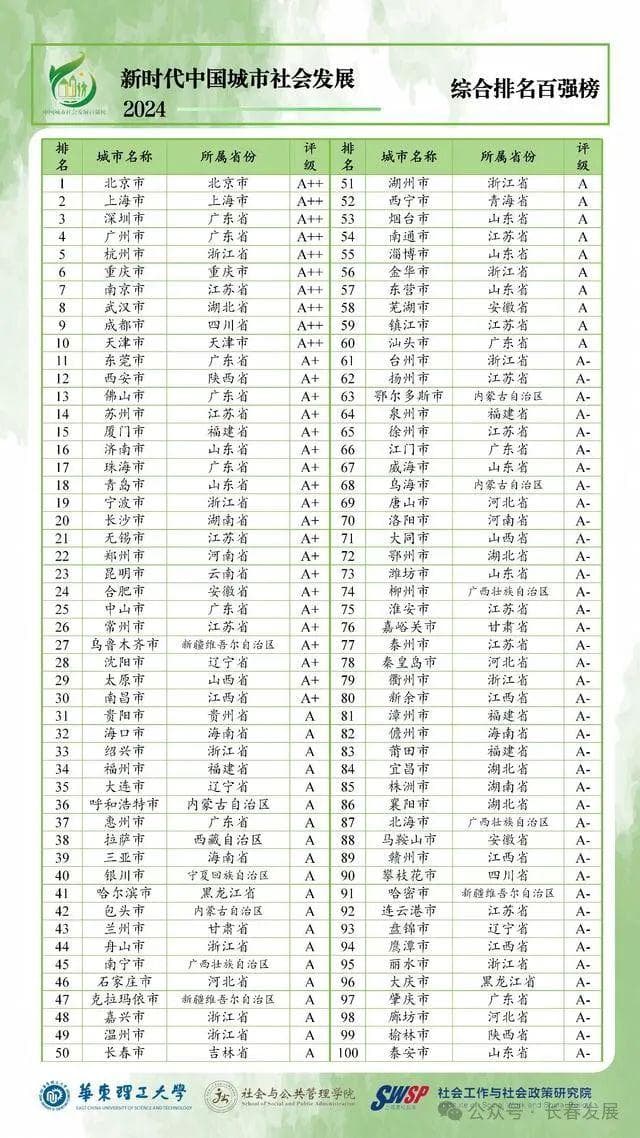 新时代中国城市社会发展
2024
综合排名百强榜
中国城市社会发展百强榜
排名 城市名称 所属省份 评级 排名 城市名称 所属省份 评级
1 北京市 北京市 A++ 51 湖州市 浙江省 A
2 上海市 上海市 A++ 52 西宁市 青海省 A
3 深圳市 广东省 A++ 53 烟台市 山东省 A
4 广州市 广东省 A++ 54 南通市 江苏省 A
5 杭州市 浙江省 A++ 55 淄博市 山东省 A
6 重庆市 重庆市 A++ 56 金华市 浙江省 A
7 南京市 江苏省 A++ 57 东营市 山东省 A
8 武汉市 湖北省 A++ 58 芜湖市 安徽省 A
9 成都市 四川省 A++ 59 镇江市 江苏省 A
10 天津市 天津市 A++ 60 汕头市 广东省 A
11 东莞市 广东省 A+ 61 台州市 浙江省 A-
12 西安市 陕西省 A+ 62 扬州市 江苏省 A-
13 佛山市 广东省 A+ 63 鄂尔多斯市 内蒙古自治区 A-
14 苏州市 江苏省 A+ 64 泉州市 福建省 A-
15 厦门市 福建省 A+ 65 徐州市 江苏省 A-
16 济南市 山东省 A+ 66 江门市 广东省 A-
17 珠海市 广东省 A+ 67 威海市 山东省 A-
18 青岛市 山东省 A+ 68 乌海市 内蒙古自治区 A-
19 宁波市 浙江省 A+ 69 唐山市 河北省 A-
20 长沙市 湖南省 A+ 70 洛阳市 河南省 A-
21 无锡市 江苏省 A+ 71 大同市 山西省 A-
22 郑州市 河南省 A+ 72 鄂州市 湖北省 A-
23 昆明市 云南省 A+ 73 潍坊市 山东省 A-
24 合肥市 安徽省 A+ 74 柳州市 广西壮族自治区 A-
25 中山市 广东省 A+ 75 淮安市 江苏省 A-
26 常州市 江苏省 A+ 76 嘉峪关市 甘肃省 A-
27 乌鲁木齐市 新疆维吾尔自治区 A+ 77 泰州市 江苏省 A-
28 沈阳市 辽宁省 A+ 78 秦皇岛市 河北省 A-
29 太原市 山西省 A+ 79 衢州市 浙江省 A-
30 南昌市 江西省 A+ 80 新余市 江西省 A-
31 贵阳市 贵州省 A 81 漳州市 福建省 A-
32 海口市 海南省 A 82 儋州市 海南省 A-
33 绍兴市 浙江省 A 83 莆田市 福建省 A-
34 福州市 福建省 A 84 宜昌市 湖北省 A-
35 大连市 辽宁省 A 85 株洲市 湖南省 A-
36 呼和浩特市 内蒙古自治区 A 86 襄阳市 湖北省 A-
37 惠州市 广东省 A 87 北海市 广西壮族自治区 A-
38 拉萨市 西藏自治区 A 88 马鞍山市 安徽省 A-
39 三亚市 海南省 A 89 赣州市 江西省 A-
40 银川市 宁夏回族自治区 A 90 攀枝花市 四川省 A-
41 哈尔滨市 黑龙江省 A 91 哈密市 新疆维吾尔自治区 A-
42 包头市 内蒙古自治区 A 92 连云港市 江苏省 A-
43 兰州市 甘肃省 A 93 盘锦市 辽宁省 A-
44 舟山市 浙江省 A 94 鹰潭市 江西省 A-
45 南宁市 广西壮族自治区 A 95 丽水市 浙江省 A-
46 石家庄市 河北省 A 96 大庆市 黑龙江省 A-
47 克拉玛依市 新疆维吾尔自治区 A 97 肇庆市 广东省 A-
48 嘉兴市 浙江省 A 98 廊坊市 河北省 A-
49 温州市 浙江省 A 99 榆林市 陕西省 A-
50 长春市 吉林省 A 100 泰安市 山东省 A-
华东理工大学 社会与公共管理学院 SWSP 社会工作与社会政策研究院
EAST CHINA UNIVERSITY OF SCIENCE AND TECHNOLOGY School of Social and Public Administration
公众号·长春发展